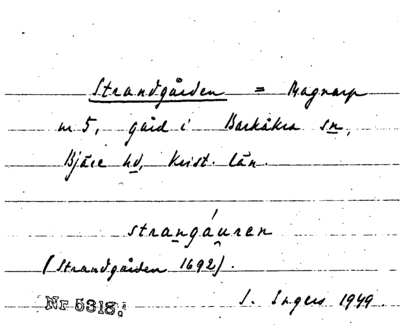 Strandgården = Magnarp
nr 5, gård i Barkåkra sn,
Bjäre hd, Krist. län.
strangáuren
(Strandgården 1692).
Nr 5318. I. Ingers 1949.